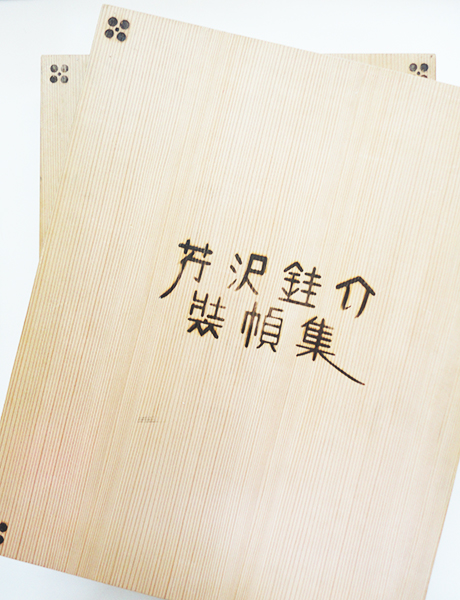 芹沢銈介
装幀集